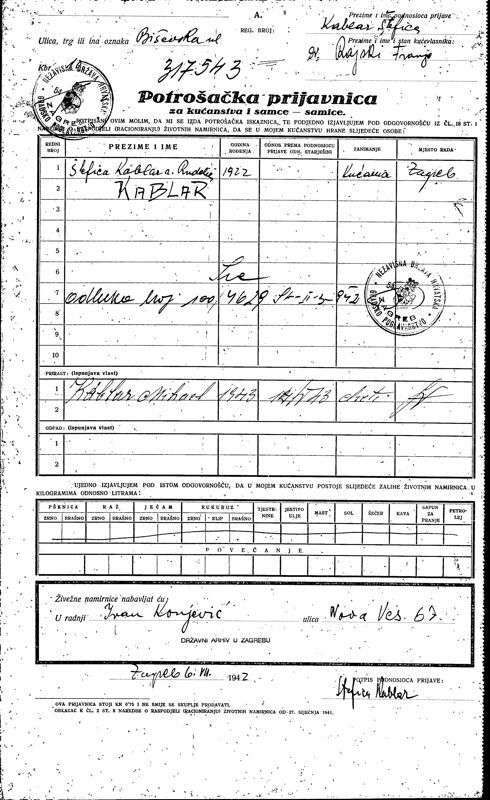 A.
Prezime i ime podnosioca prijave
Kablar Štefica
Ulica, trg ili ina oznaka
REG. BROJ:
Prezime i ime i stan kućevlasnika:
Kbr.
317543
Potrošačka prijavnica
za kućanstva i samce — samice.
POTPISANI OVIM MOLIM, DA MI SE IZDA POTROŠAČKA ISKAZNICA, TE PODJEDNO IZJAVLJUJEM POD ODGOVORNOŠĆU IZ ČL. 18 ST. 1
(RACIONIRANJU) ŽIVOTNIH NAMIRNICA, DA SE U MOJEM KUĆANSTVU HRANE SLIJEDEĆE OSOBE:
REDNI BROJ
PREZIME I IME
GODINA ROĐENJA
ODNOS PREMA PODNOSIOCU PRIJAVE ODN. STARJEŠINI
ZANIMANJE
MJESTO RADA
1 Štefica Kablar 1922 Zagreb
2 KABLAR
3
4
5
6
7 odluka broj
8
9
10
NEZAVISNA DRŽAVA HRVATSKA
GRADSKO POGLAVARSTVO
ZAGREB
PRIRAST: (ispunjava vlast)
1 Kablar Mihael 1943
2
OTPAD: (ispunjava vlast)
1
2
UJEDNO IZJAVLJUJEM POD ISTOM ODGOVORNOŠĆU, DA U MOJEM KUĆANSTVU POSTOJE SLIJEDEĆE ZALIHE ŽIVOTNIH NAMIRNICA U
KILOGRAMIMA ODNOSNO LITRAMA:
PŠENICA RAŽ JEČAM KUKURUZ TJESTENINE JESTIVO ULJE MAST SOL ŠEĆER KAVA SAPUN ZA PRANJE PETROLEJ
ZRNO BRAŠNO ZRNO BRAŠNO ZRNO BRAŠNO ZRNO KLIP BRAŠNO
POVEĆANJE
Živežne namirnice nabavljat ću:
U radnji Ivan Konjević ulica Nova Ves 67
DRŽAVNI ARHIV U ZAGREBU
Zagreb 6. VII. 1942
POTPIS PODNOSIOCA PRIJAVE:
Štefica Kablar
OVA PRIJAVNICA STOJI KN 0'75 I NE SMIJE SE SKUPLJE PRODAVATI.
OBRAZAC K ČL. 2 ST. 3 NAREDBE O RASPODJELI (RACIONIRANJU) ŽIVOTNIH NAMIRNICA OD 27. SIJEČNJA 1941.